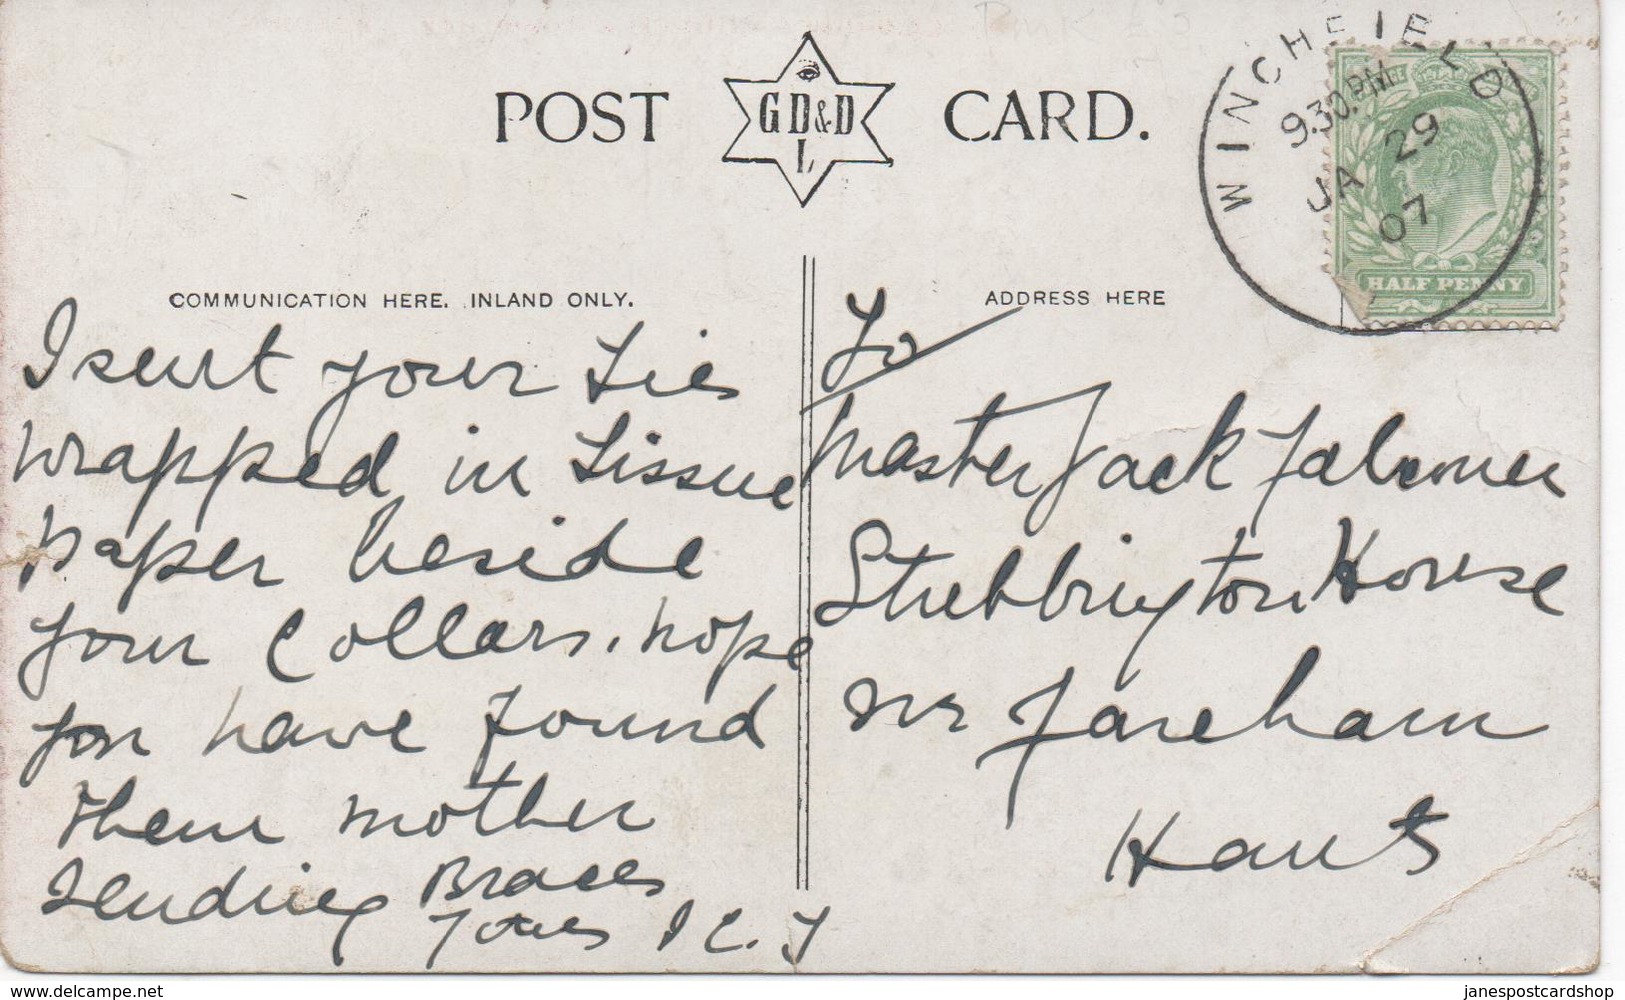 POST CARD.
GD&D
L
WINCHFIELD
9.30.PM
JA 29
07
HALF PENNY
COMMUNICATION HERE. INLAND ONLY.
I sent your Ties
wrapped in Tissue
paper beside
your Collars. hope
you have found
them mother
sending Braces
ADDRESS HERE
To
Master Jack Falconer
Stubbington House
nr Fareham
Hants
www.delcampe.net
janespostcardshop